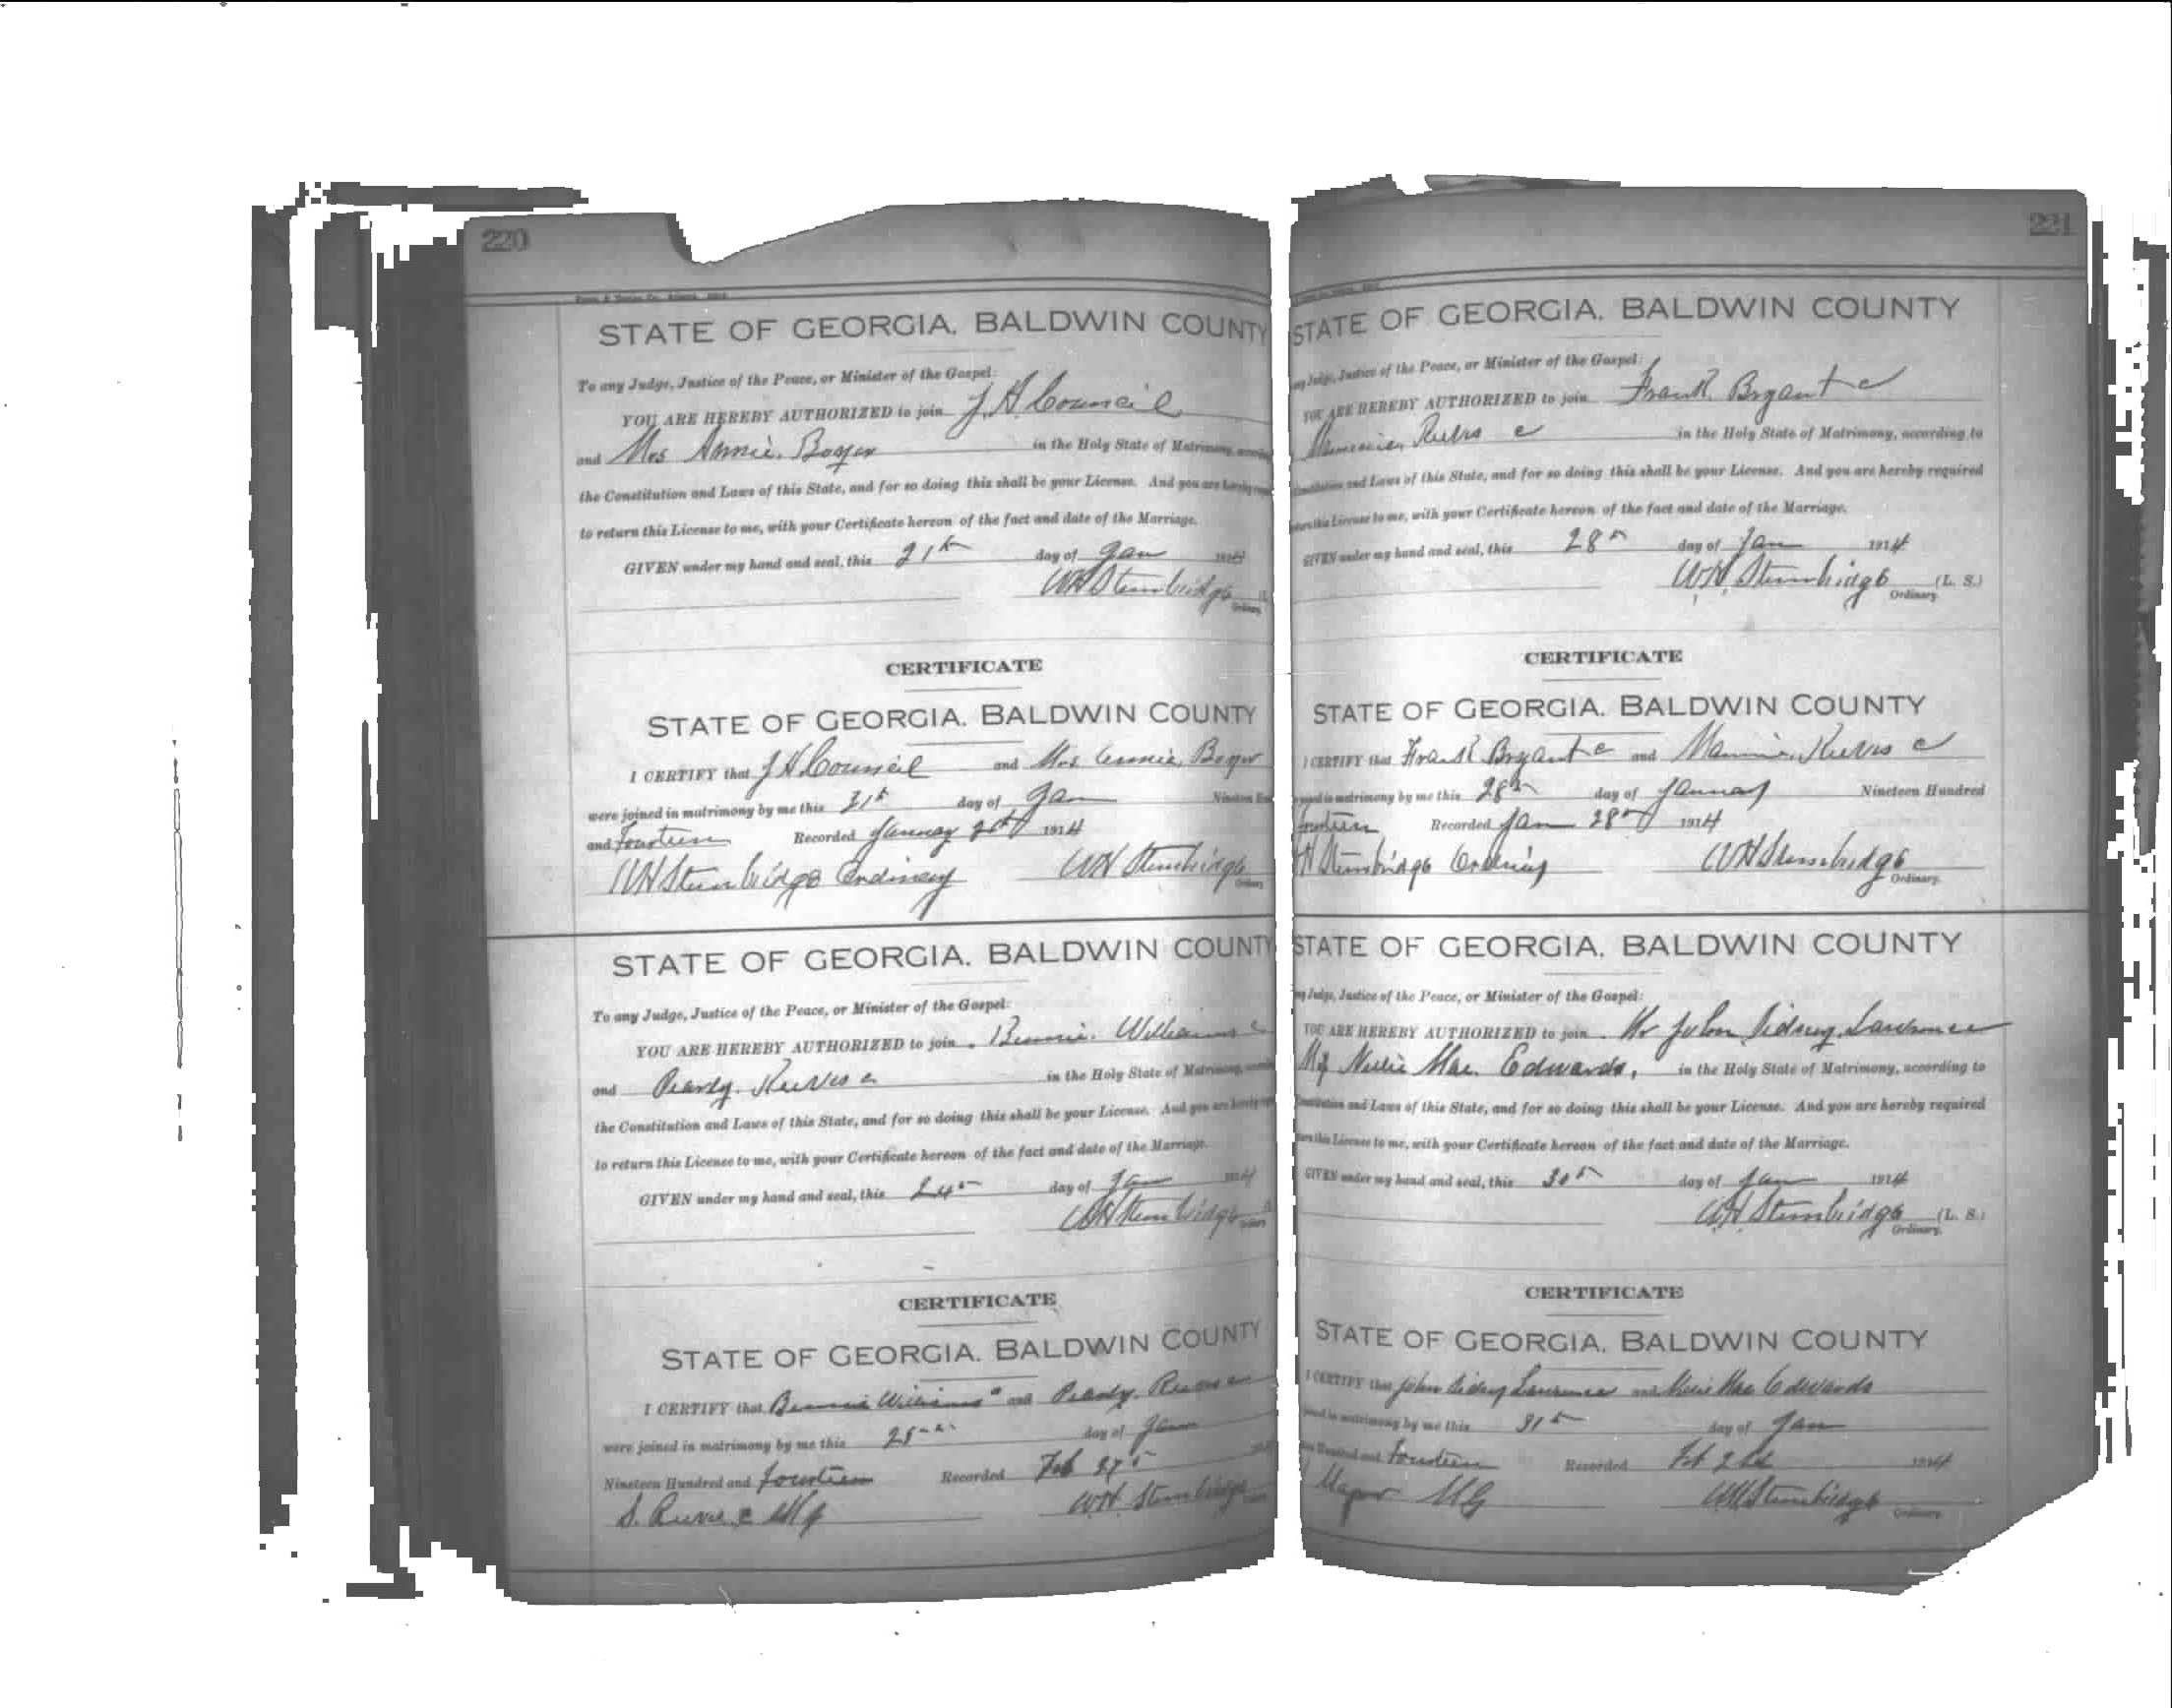 220
STATE OF GEORGIA. BALDWIN COUNTY
To any Judge, Justice of the Peace, or Minister of the Gospel:
YOU ARE HEREBY AUTHORIZED to join J. H Council
and Mrs Annie. Boyer in the Holy State of Matrimony,
the Constitution and Laws of this State, and for so doing this shall be your License. And you are hereby
to return this License to me, with your Certificate hereon of the fact and date of the Marriage.
GIVEN under my hand and seal, this day of Jan 1914
WH Stembridge
Ordinary
CERTIFICATE
STATE OF GEORGIA. BALDWIN COUNTY
I CERTIFY that J H Council and Mrs Annie, Boyer
were joined in matrimony by me this day of Jan
and Fourteen Recorded January 1914
WH Stembridge Ordinary WH Stembridge
Ordinary
STATE OF GEORGIA. BALDWIN COUNTY
To any Judge, Justice of the Peace, or Minister of the Gospel:
YOU ARE HEREBY AUTHORIZED to join Bennie. Williams c
and Pearly. Reeves c in the Holy State of Matrimony,
the Constitution and Laws of this State, and for so doing this shall be your License. And you are hereby
to return this License to me, with your Certificate hereon of the fact and date of the Marriage.
GIVEN under my hand and seal, this 24th day of Jan 1914
WH Stembridge
Ordinary
CERTIFICATE
STATE OF GEORGIA. BALDWIN COUNTY
I CERTIFY that Bennie Williams c and Pearly. Reeves c
were joined in matrimony by me this 25th day of Jan
Nineteen Hundred and fourteen Recorded Feb
S. Reeves c MG W.H. Stembridge
221
STATE OF GEORGIA. BALDWIN COUNTY
any Judge, Justice of the Peace, or Minister of the Gospel:
YOU ARE HEREBY AUTHORIZED to join Frank. Bryant c
Mamie, Reeves c in the Holy State of Matrimony, according to
Constitution and Laws of this State, and for so doing this shall be your License. And you are hereby required
return this License to me, with your Certificate hereon of the fact and date of the Marriage.
GIVEN under my hand and seal, this 28th day of Jan 1914
WH, Stembridge (L. S.)
Ordinary.
CERTIFICATE
STATE OF GEORGIA. BALDWIN COUNTY
I CERTIFY that Frank Bryant c and Mamie, Reeves c
joined in matrimony by me this 28th day of January Nineteen Hundred
fourteen Recorded Jan 28th 1914
H Stembridge Ordinary WH Stembridge
Ordinary.
STATE OF GEORGIA. BALDWIN COUNTY
any Judge, Justice of the Peace, or Minister of the Gospel:
YOU ARE HEREBY AUTHORIZED to join Mr John Sidney Lawrence
Miss Nellie Mae. Edwards, in the Holy State of Matrimony, according to
Constitution and Laws of this State, and for so doing this shall be your License. And you are hereby required
return this License to me, with your Certificate hereon of the fact and date of the Marriage.
GIVEN under my hand and seal, this 30th day of Jan 1914
W.H. Stembridge (L. S.)
Ordinary.
CERTIFICATE
STATE OF GEORGIA. BALDWIN COUNTY
I CERTIFY that John Sidney Lawrence and Nellie Mae Edwards
joined in matrimony by me this 31st day of Jan
Hundred and Fourteen Recorded Feb 2nd 1914
Major MG WH Stembridge
Ordinary.